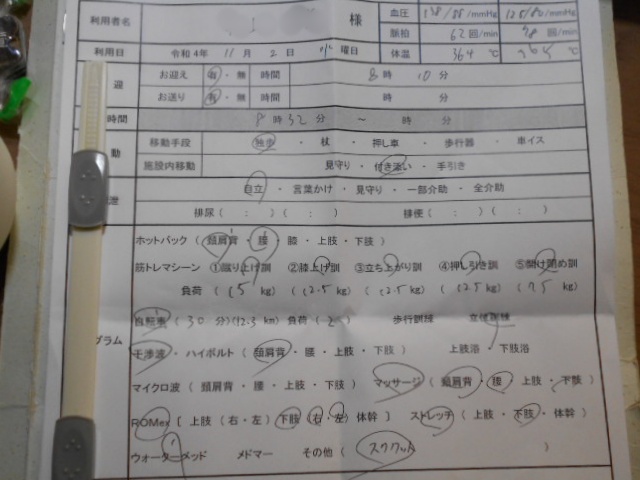 利用者名 様 血圧 138/88/mmHg 125/80/mmHg
脈拍 62回/min 78回/min
利用日 令和4年 11月 2日 水曜日 体温 364℃ 365℃
迎 お迎え 有・無 時間 8時 10分
お送り 有・無 時間 時 分
時間 8時32分 ～ 時 分
動 移動手段 独歩 ・ 杖 ・ 押し車 ・ 歩行器 ・ 車イス
施設内移動 見守り ・ 付き添い ・ 手引き
泄 自立 ・ 言葉かけ ・ 見守り ・ 一部介助 ・ 全介助
排尿（ ： ）（ ： ） 排便（ ： ）（ ： ）
ホットパック（ 頚肩背 ・ 腰 ・ 膝 ・ 上肢 ・ 下肢 ）
筋トレマシーン ①蹴り上げ訓 ②膝上げ訓 ③立ち上がり訓 ④押し引き訓 ⑤開け閉め訓
負荷 （15 kg） （2.5 kg） （2.5 kg） （2.5 kg） （7.5 kg）
自転車（30 分）（12.3 km）負荷（ ） 歩行訓練 立位訓練
グラム 干渉波 ・ ハイボルト（ 頚肩背 ・ 腰 ・ 上肢 ・ 下肢 ） 上肢浴 ・ 下肢浴
マイクロ波（ 頚肩背 ・ 腰 ・ 上肢 ・ 下肢 ） マッサージ（ 頚肩背 ・ 腰 ・ 上肢 ・ 下肢 ）
ROMex［ 上肢（右・左）下肢（右・左）体幹 ］ ストレッチ（ 上肢 ・ 下肢 ・ 体幹 ）
ウォーターメッド メドマー その他（ スクワット ）